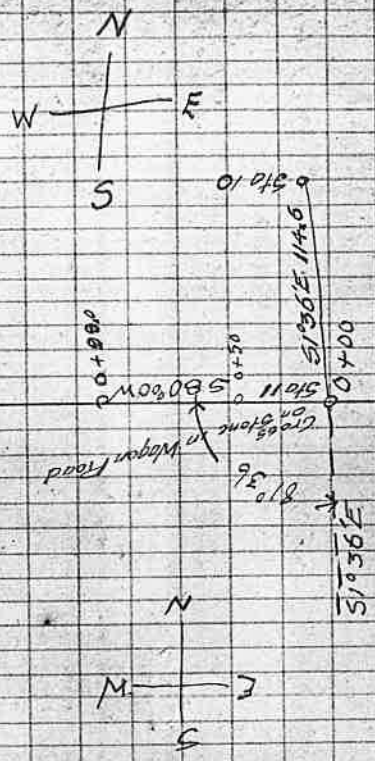 N
W E
S
Sta 10
S1°36'E 114.6
0+88°
S80°00W
0+50
Sta 11
0+00
Cross on Stone in Wagon Road
81° 36
S1°36'E
N
W E
S